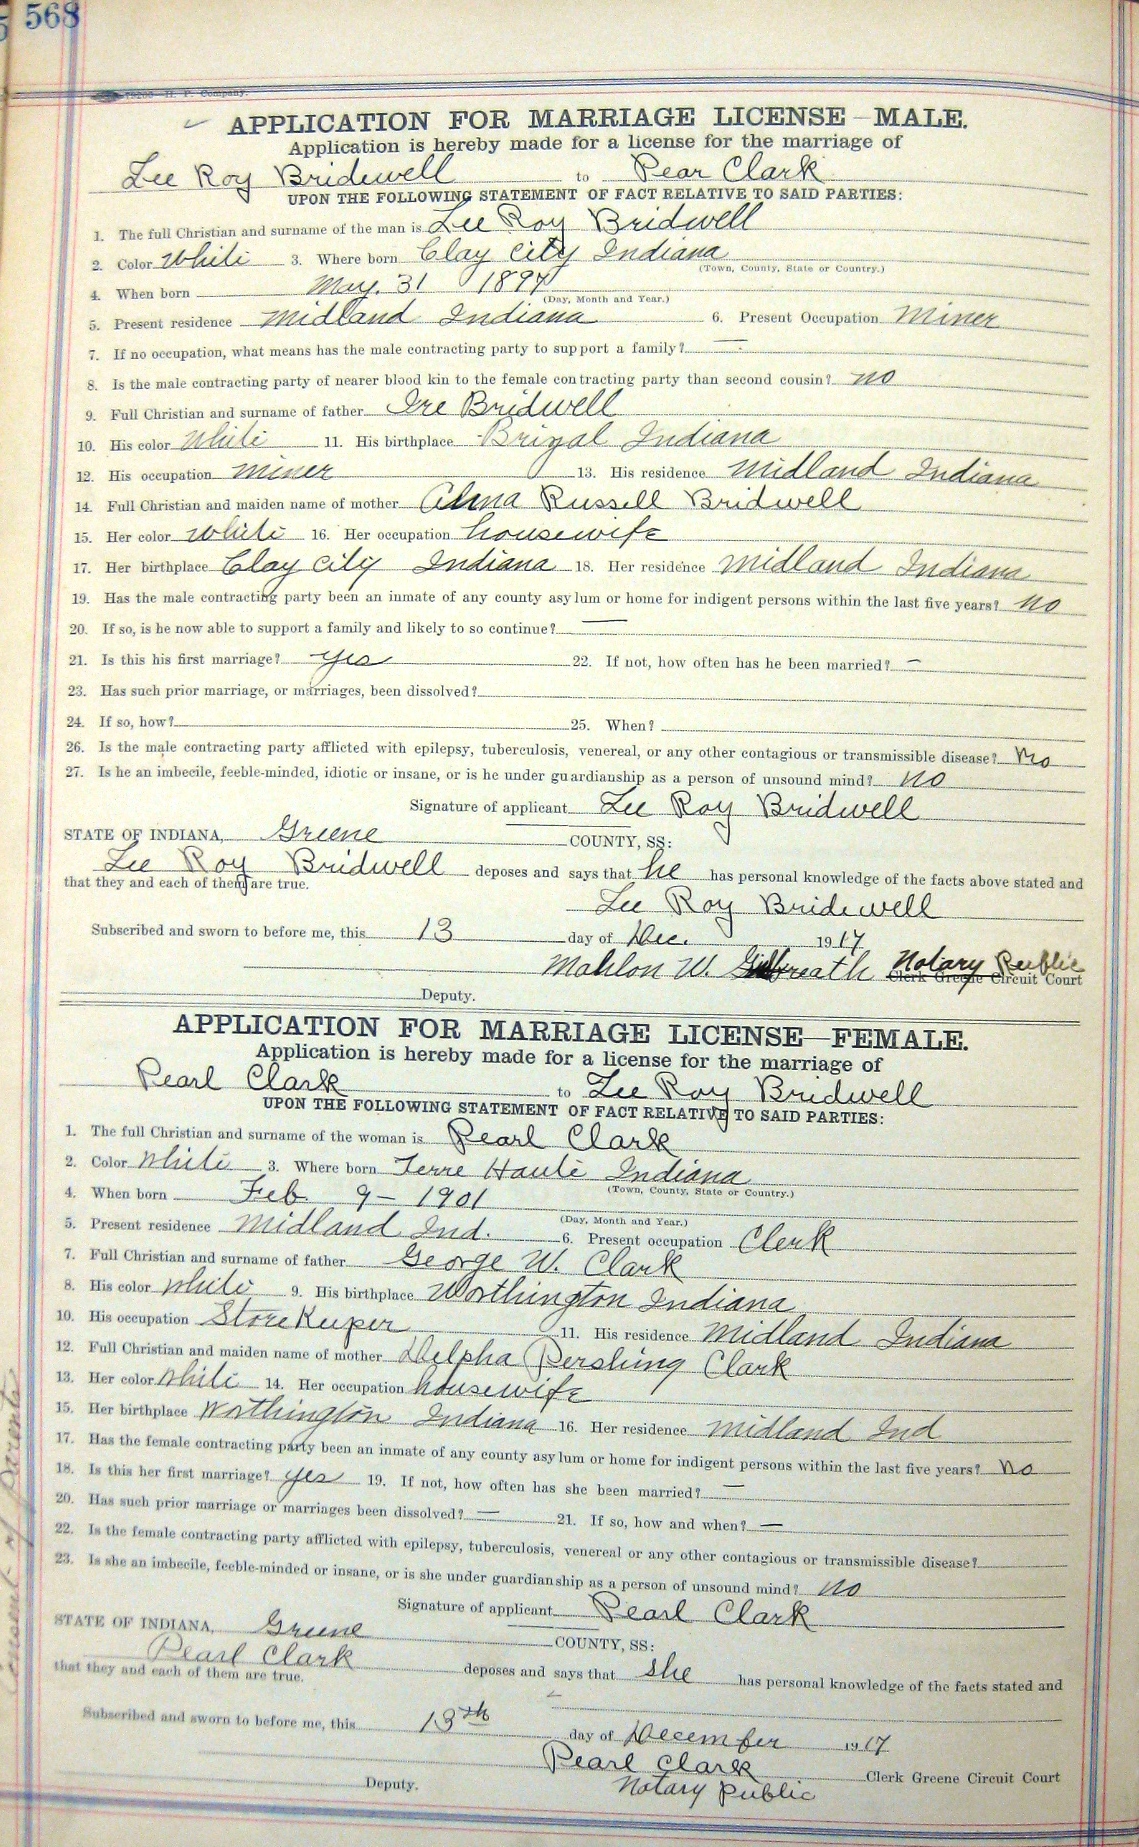 568
APPLICATION FOR MARRIAGE LICENSE—MALE.
Application is hereby made for a license for the marriage of
Lee Roy Bridwell to Pear Clark
UPON THE FOLLOWING STATEMENT OF FACT RELATIVE TO SAID PARTIES:
1. The full Christian and surname of the man is Lee Roy Bridwell
2. Color White 3. Where born Clay City Indiana
(Town, County, State or Country.)
4. When born May. 31 1897
(Day, Month and Year.)
5. Present residence Midland Indiana 6. Present Occupation Miner
7. If no occupation, what means has the male contracting party to support a family? —
8. Is the male contracting party of nearer blood kin to the female contracting party than second cousin? no
9. Full Christian and surname of father Ire Bridwell
10. His color White 11. His birthplace Indiana
12. His occupation miner 13. His residence Midland Indiana
14. Full Christian and maiden name of mother Russell Bridwell
15. Her color White 16. Her occupation housewife
17. Her birthplace Clay City Indiana 18. Her residence Midland Indiana
19. Has the male contracting party been an inmate of any county asylum or home for indigent persons within the last five years? no
20. If so, is he now able to support a family and likely to so continue? —
21. Is this his first marriage? yes 22. If not, how often has he been married? —
23. Has such prior marriage, or marriages, been dissolved?
24. If so, how? 25. When?
26. Is the male contracting party afflicted with epilepsy, tuberculosis, venereal, or any other contagious or transmissible disease? No
27. Is he an imbecile, feeble-minded, idiotic or insane, or is he under guardianship as a person of unsound mind? no
Signature of applicant Lee Roy Bridwell
STATE OF INDIANA, Greene COUNTY, SS:
Lee Roy Bridwell deposes and says that he has personal knowledge of the facts above stated and
that they and each of them are true.
Lee Roy Bridwell
Subscribed and sworn to before me, this 13 day of Dec. 1917
Mahlon W. Notary Public
Clerk Greene Circuit Court
Deputy.
APPLICATION FOR MARRIAGE LICENSE—FEMALE.
Application is hereby made for a license for the marriage of
Pearl Clark to Lee Roy Bridwell
UPON THE FOLLOWING STATEMENT OF FACT RELATIVE TO SAID PARTIES:
1. The full Christian and surname of the woman is Pearl Clark
2. Color White 3. Where born Terre Haute Indiana
(Town, County, State or Country.)
4. When born Feb 9 – 1901
(Day, Month and Year.)
5. Present residence Midland Ind. 6. Present occupation Clerk
7. Full Christian and surname of father George W. Clark
8. His color White 9. His birthplace Worthington Indiana
10. His occupation Store Keeper 11. His residence Midland Indiana
12. Full Christian and maiden name of mother Delpha Pershing Clark
13. Her color White 14. Her occupation housewife
15. Her birthplace Worthington Indiana 16. Her residence Midland Ind
17. Has the female contracting party been an inmate of any county asylum or home for indigent persons within the last five years? No
18. Is this her first marriage? yes 19. If not, how often has she been married? —
20. Has such prior marriage or marriages been dissolved? — 21. If so, how and when? —
22. Is the female contracting party afflicted with epilepsy, tuberculosis, venereal or any other contagious or transmissible disease?
23. Is she an imbecile, feeble-minded or insane, or is she under guardianship as a person of unsound mind? no
Signature of applicant Pearl Clark
STATE OF INDIANA, Greene COUNTY, SS:
Pearl Clark deposes and says that she has personal knowledge of the facts stated and
that they and each of them are true.
Subscribed and sworn to before me, this 13th day of December 1917
Pearl Clark Clerk Greene Circuit Court
Deputy. Notary Public